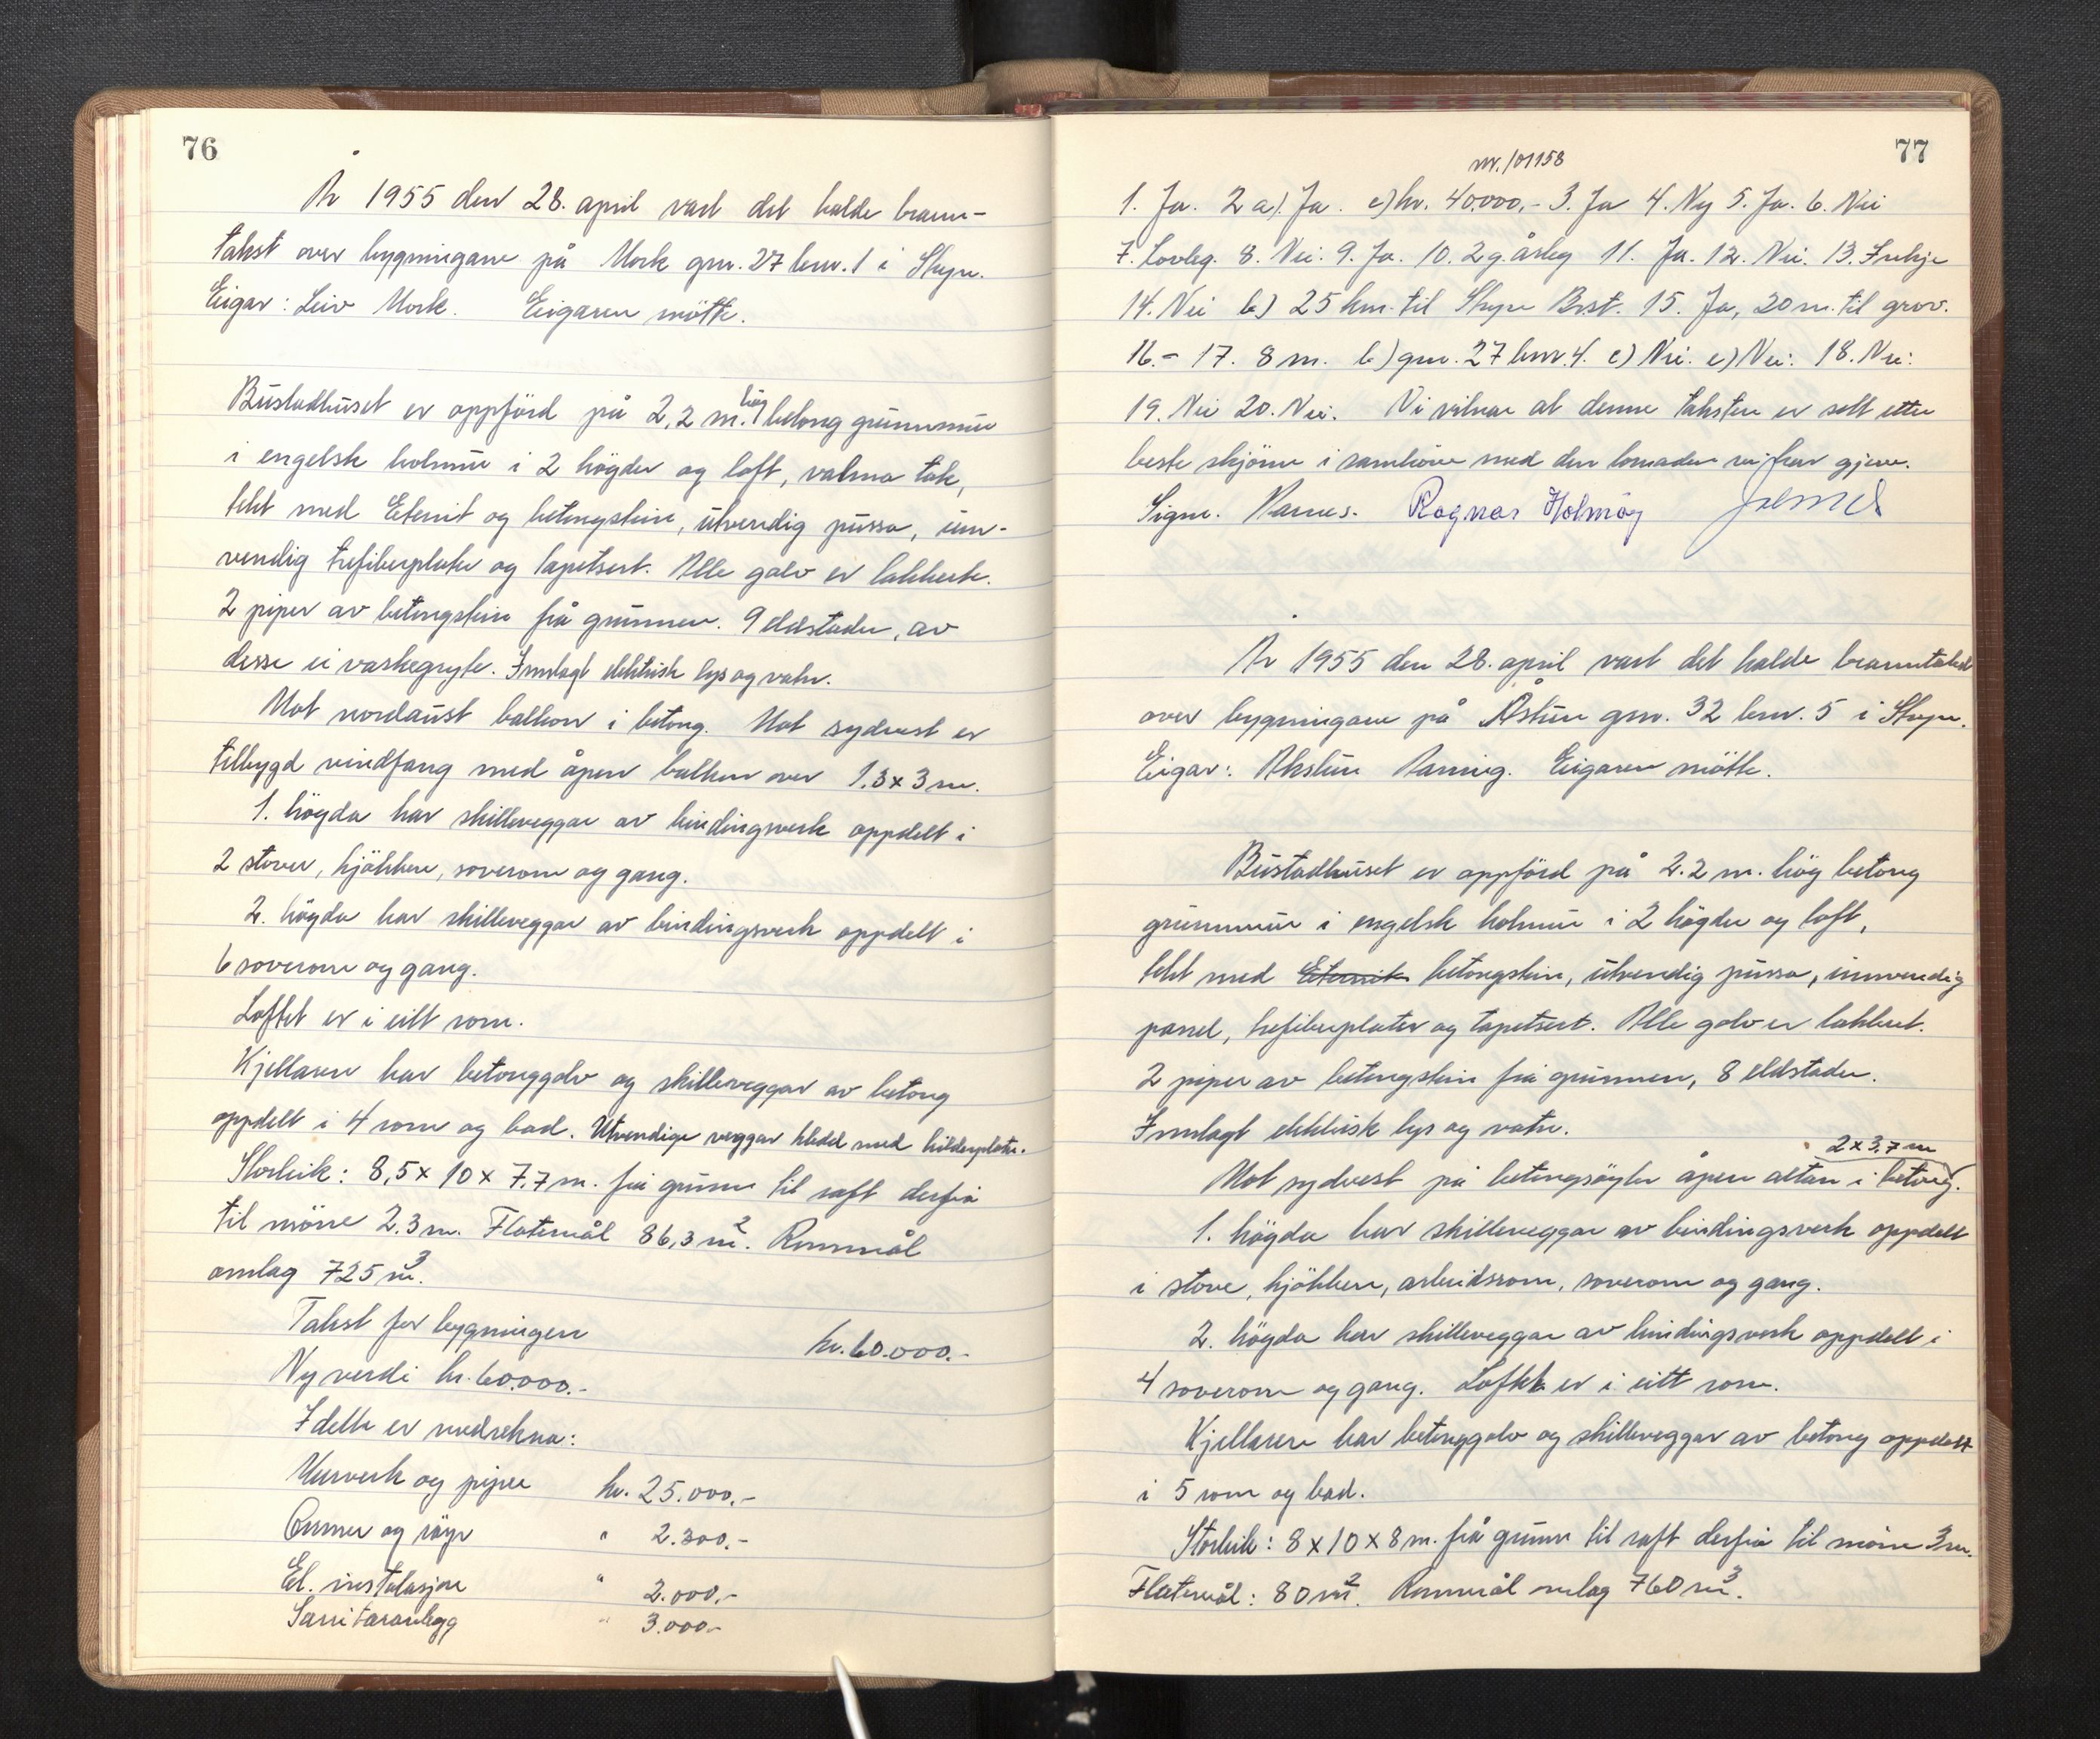 76
År 1955 den 28. april vart det halde brann-
takst over bygningane på Mork gnr. 27 bnr. 1 i Stryn.
Eigar: Leiv Mork. Eigaren mötte.
Bustadhuset er oppförd på 2,2 m. hög betong grunnmur
i engelsk holmur i 2 högder og loft, valma tak,
tekt med Eternit og betongstein, utvendig pussa, inn-
vendig trefiberplater og tapetsert. Alle golv er lakkerte.
2 piper av betongstein frå grunnen. 9 eldstader, av
desse ei vaskegryte. Innlagt elektrisk lys og vatn.
Mot nordaust balkon i betong. Mot sydvest er
tilbygd vindfang med åpen balkon over 1.3 x 3 m.
1. högda har skilleveggar av bindingsverk oppdelt i
2 stover, kjökken, soverom og gang.
2. högda har skilleveggar av bindingsverk oppdelt i
6 soverom og gang.
Loftet er i eitt rom.
Kjellaren har betonggolv og skilleveggar av betong
oppdelt i 4 rom og bad. Utvendige veggar kledd med
Storleik: 8,5 x 10 x 7,7 m. frå grunn til raft derfrå
til möne 2.3 m. Flatemål 86,3 m². Rommål
omlag 725 m³.
Takst for bygningen kr. 60.000.-
Ny verdi kr. 60.000.-
I dette er medrekna:
Murverk og piper kr. 25.000.-
Omner og röyr " 2.300.-
El. instalasjon " 2.000.-
Sanitæranlegg " 3.000.-
77
nr. 101158
1. Ja. 2 a) Ja. c) kr. 40.000,- 3. Ja 4. Ny 5. Ja. 6. Nei
7. Lovleg. 8. Nei. 9. Ja. 10. 2 g. årleg 11. Ja. 12. Nei. 13. Trekje
14. Nei b) 25 km. til Stryn Br.st. 15. Ja, 20 m. til grov.
16. - 17. 8 m. b) gnr. 27 bnr. 4. c) Nei. e) Nei. 18. Nei.
19. Nei 20. Nei. Vi vitnar at denne taksten er sett etter
beste skjönn i samhöve med den lovnaden vi har gjeve.
Sign. Ragnar Holmöy
År 1955 den 28. april vart det halde branntakst
over bygningane på Åstun gnr. 32 bnr. 5 i Stryn.
Eigar: Eigaren mötte.
Bustadhuset er oppförd på 2.2 m. hög betong
grunnmur i engelsk holmur i 2 högder og loft,
tekt med Eternit betongstein, utvendig pussa, innvendig
panel, trefiberplater og tapetsert. Alle golv er lakkert.
2 piper av betongstein frå grunnen, 8 eldstader.
Innlagt elektrisk lys og vatn.
2 x 3,7 m
Mot sydvest på betongsöyler åpen altan i betong.
1. högda har skilleveggar av bindingsverk oppdelt
i stove, kjökken, arbeidsrom, soverom og gang.
2. högda har skilleveggar av bindingsverk oppdelt i
4 soverom og gang. Loftet er i eitt rom.
Kjellaren har betonggolv og skilleveggar av betong oppdelt
i 5 rom og bad.
Storleik: 8 x 10 x 8 m. frå grunn til raft derfrå til möne 3 m.
Flatemål: 80 m². Rommål omlag 760 m³.